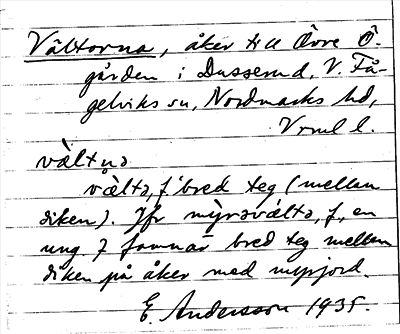 Vältorna, åker till Övre Ö-
gården i Dusserud, V. Få-
gelviks sn, Nordmarks hd,
Vrml l.
vàltna
vål̀tа, f. 'bred teg (mellan
diken). Jfr myrsvålta, f., en
ung. 7 famnar bred teg mellan
diken på åker med myrjord.
E. Andersson 1935.